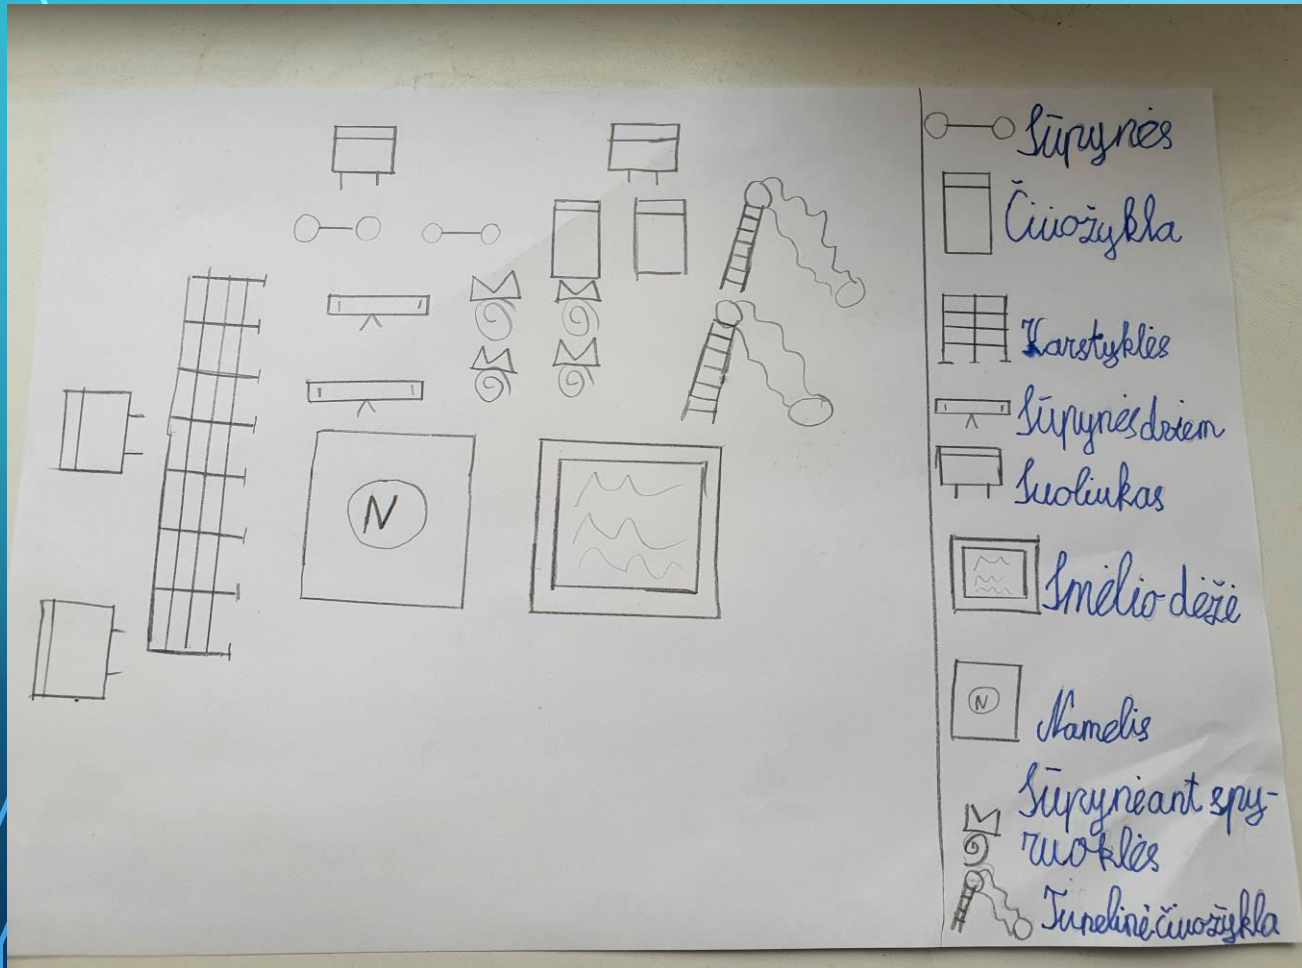 N
Sūpynės
Čiuožykla
Karstyklės
Sūpynės dviem
Suoliukas
Smėlio dėžė
N
Namelis
Sūpynė ant spy-
ruoklės
Tunelinė čiuožykla